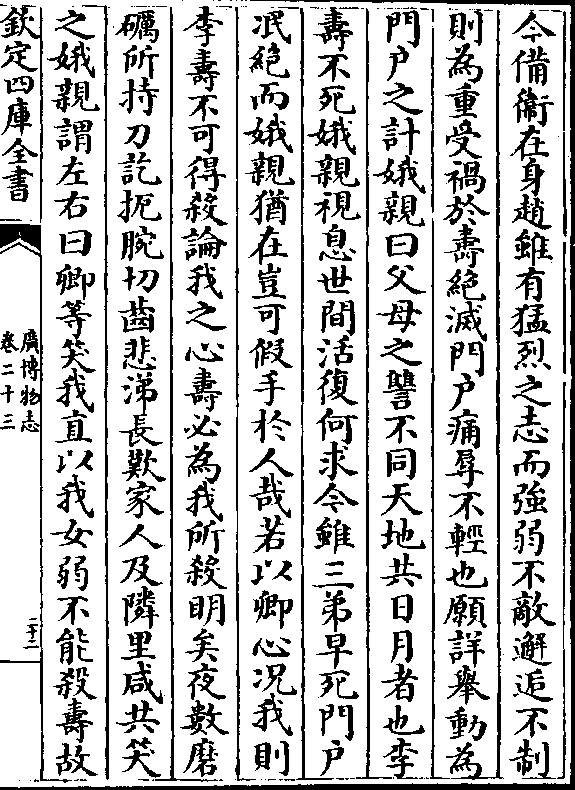 今備衞在身趙雖有猛烈之志而強弱不敵邂逅不制
則為重受禍於壽絕滅門户痛辱不輕也願詳舉動為
門户之計娥親曰父母之讐不同天地共日月者也李
壽不死娥親視息世間活復何求今雖三弟早死門户
泯絕而娥親猶在豈可假手於人哉若以卿心况我則
李壽不可得殺論我之心壽必為我所殺明矣夜數磨
礪所持刀訖扼腕切齒悲涕長歎家人及隣里咸共笑
之娥親謂左右曰卿等笑我直以我女弱不能殺壽故
欽定四庫全書
廣博物志
卷二十三
二十二